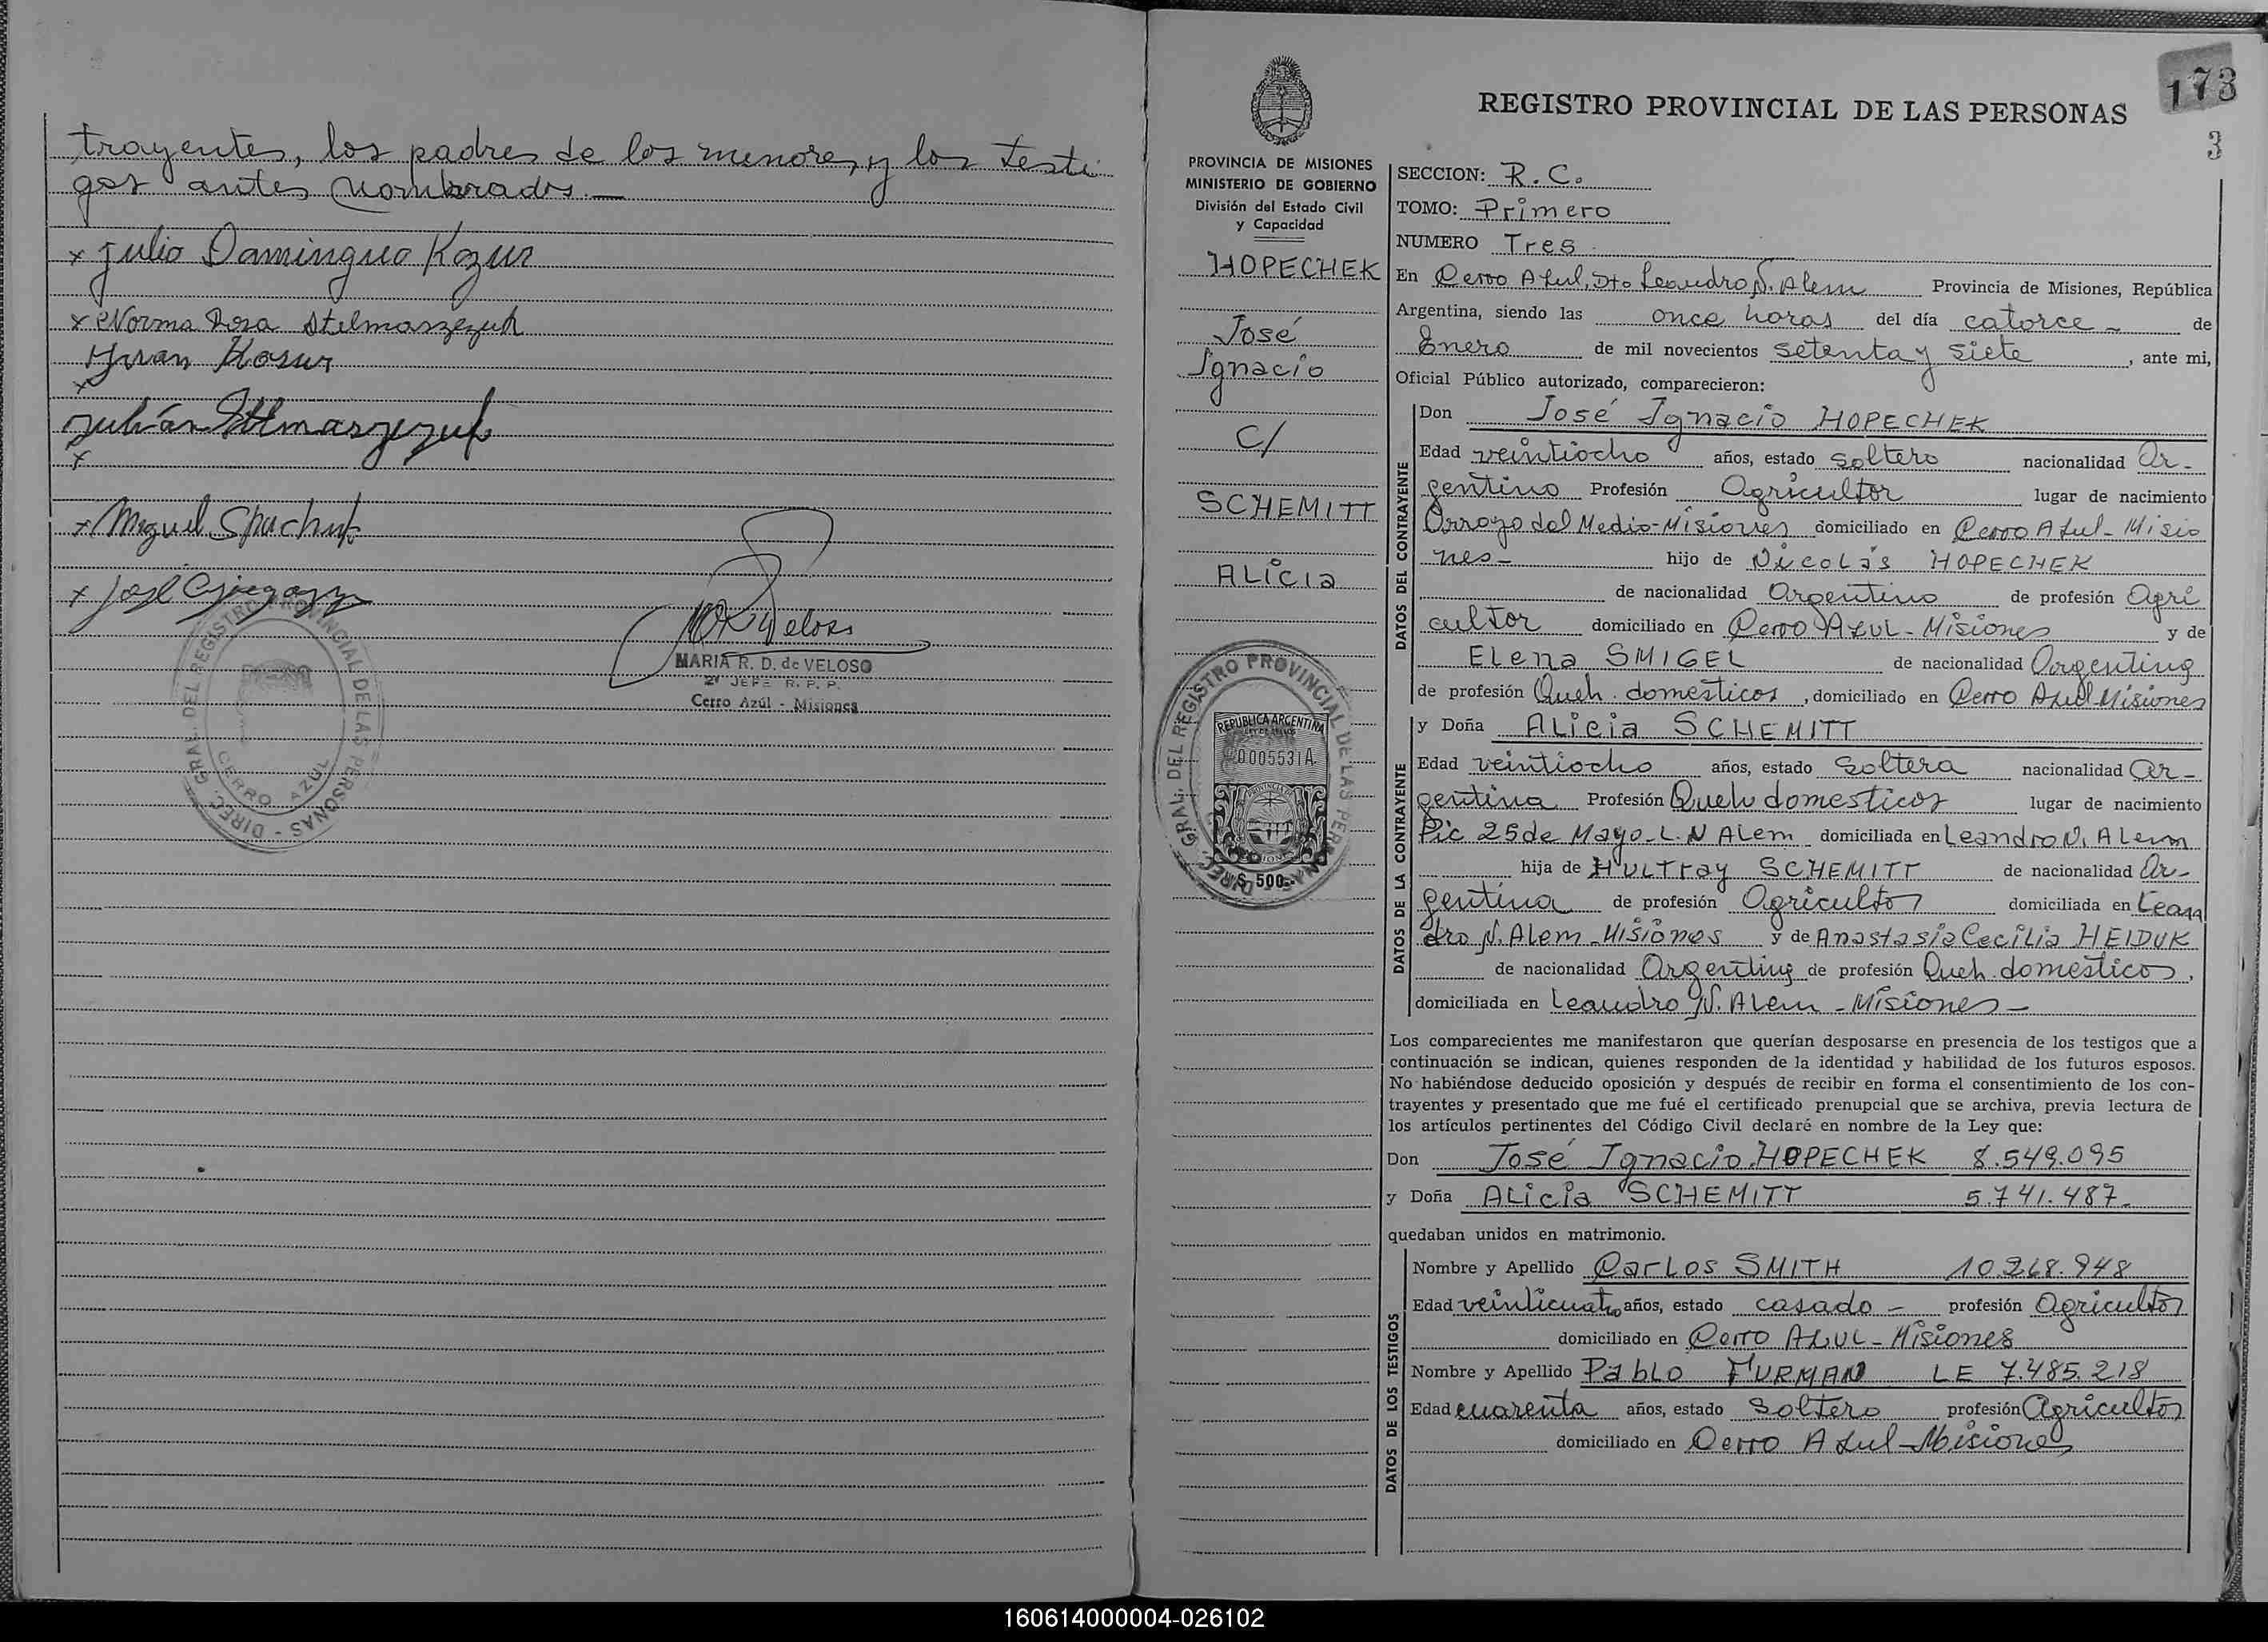 trayentes, los padres de los menores, y los testi
gos antes nombrados.—
x Julio Daminguo Kozur
x Norma Rosa Stelmaszezuk
Juan Kozur
x
Julián Stlmaszezuk
x
x Miguel Spachuk
x José
MARIA R. D. de VELOSO
2º JEFE R. P. P.
Cerro Azúl - Misiones
DIREC. GRAL. DEL REGISTRO PROVINCIAL DE LAS PERSONAS
CERRO AZUL
173
3
REGISTRO PROVINCIAL DE LAS PERSONAS
PROVINCIA DE MISIONES
MINISTERIO DE GOBIERNO
División del Estado Civil
y Capacidad
HOPECHEK
José
Ignacio
C/
SCHEMITT
Alicia
DIREC. GRAL. DEL REGISTRO PROVINCIAL DE LAS PER
REPUBLICA ARGENTINA
0005531A
$ 500.-
SECCION: R.C.
TOMO: Primero
NUMERO Tres
En Cerro Azul, Dto Leandro N. Alem Provincia de Misiones, República
Argentina, siendo las once horas del día catorce - de
Enero de mil novecientos setenta y siete, ante mi,
Oficial Público autorizado, comparecieron:
DATOS DEL CONTRAYENTE
Don José Ignacio HOPECHEK
Edad veintiocho años, estado soltero nacionalidad Ar-
gentino Profesión Agricultor lugar de nacimiento
Arroyo del Medio-Misiones domiciliado en Cerro Azul-Misio
nes- hijo de Nicolás HOPECHEK
de nacionalidad Argentino de profesión Agri
cultor domiciliado en Cerro Azul-Misiones y de
Elena SMIGEL de nacionalidad Argentina
de profesión Queh. domesticos, domiciliado en Cerro Azul Misiones
DATOS DE LA CONTRAYENTE
y Doña Alicia SCHEMITT
Edad veintiocho años, estado soltera nacionalidad Ar-
gentina Profesión Queh domesticos lugar de nacimiento
Pic 25 de Mayo-L.N Alem domiciliada en Leandro N. Alem
hija de HULTray SCHEMITT de nacionalidad Ar-
gentina de profesión Agricultor domiciliada en Lean
dro N. Alem-Misiones y de Anastasia Cecilia HEIDUK
de nacionalidad Argentina de profesión Queh. domesticos,
domiciliada en Leandro N. Alem - Misiones -
Los comparecientes me manifestaron que querían desposarse en presencia de los testigos que a
continuación se indican, quienes responden de la identidad y habilidad de los futuros esposos.
No habiéndose deducido oposición y después de recibir en forma el consentimiento de los con-
trayentes y presentado que me fué el certificado prenupcial que se archiva, previa lectura de
los artículos pertinentes del Código Civil declaré en nombre de la Ley que:
Don José Ignacio HOPECHEK 8.549.095
y Doña Alicia SCHEMITT 5.741.487-
quedaban unidos en matrimonio.
DATOS DE LOS TESTIGOS
Nombre y Apellido Carlos SMITH 10.268.948
Edad veinticuatro años, estado casado - profesión Agricultor
domiciliado en Cerro Azul-Misiones
Nombre y Apellido Pablo FURMAN LE 7.485.218
Edad cuarenta años, estado soltero profesión Agricultor
domiciliado en Cerro Azul-Misiones
160614000004-026102